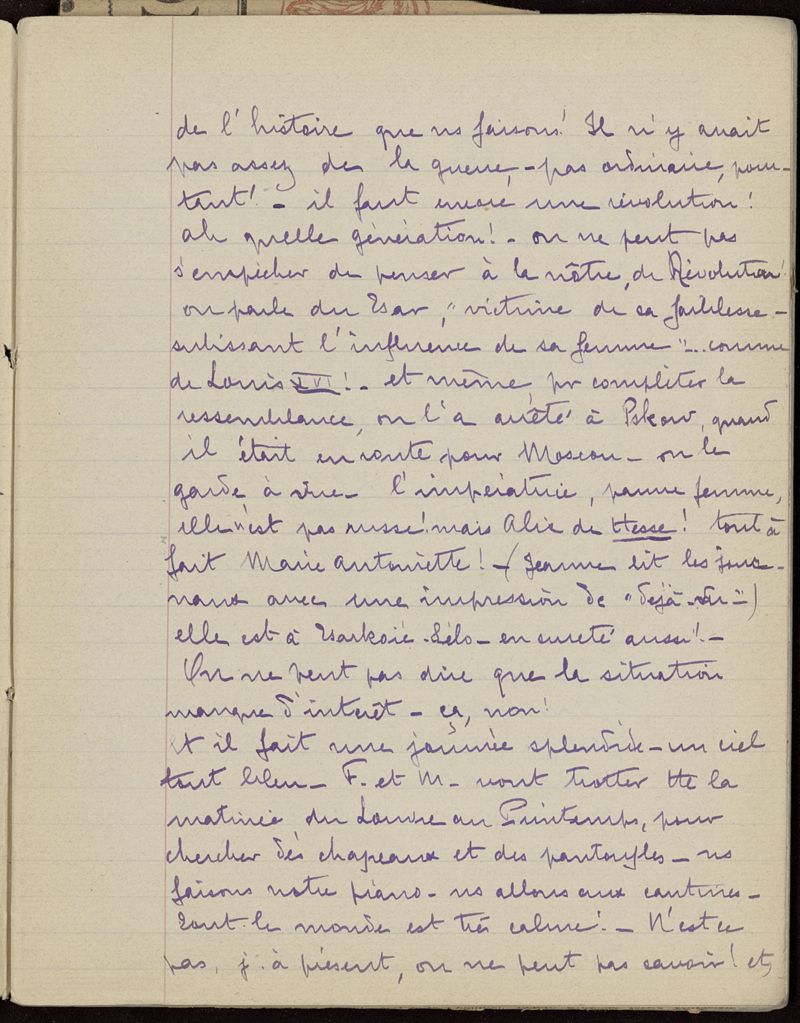 de l'histoire que ns faisons! Il n'y avait
pas assez de la guerre, - pas ordinaire, pour-
tant! - il faut encore une révolution!
ah quelle génération! - on ne peut pas
s'empêcher de penser à la nôtre, de Révolution!
on parle du Tsar, "victime de sa faiblesse -
subissant l'influence de sa femme"... comme
de Louis XVI! - et même, pr compléter la
ressemblance, on l'a arrêté à Pskow, quand
il était en route pour Moscou - on le
garde à vue - l'impératrice, pauvre femme,
elle n'est pas russe! mais Alice de Hesse! tout à
fait Marie Antoinette! - (Jeanne lit les jour-
naux avec une impression de "déjà-vu")
elle est à Tsarkoié-Sélo - en sureté aussi! -
On ne peut pas dire que la situation
manque d'intérêt - ça, non!
Et il fait une journée splendide - un ciel
tout bleu - F. et M. vont trotter tte la
matinée du Louvre au Printemps, pour
chercher des chapeaux et des pantoufles - ns
faisons notre piano - ns allons aux cantines -
Tout le monde est très calme! - N'est ce
pas, j. à présent, on ne peut pas savoir! et,